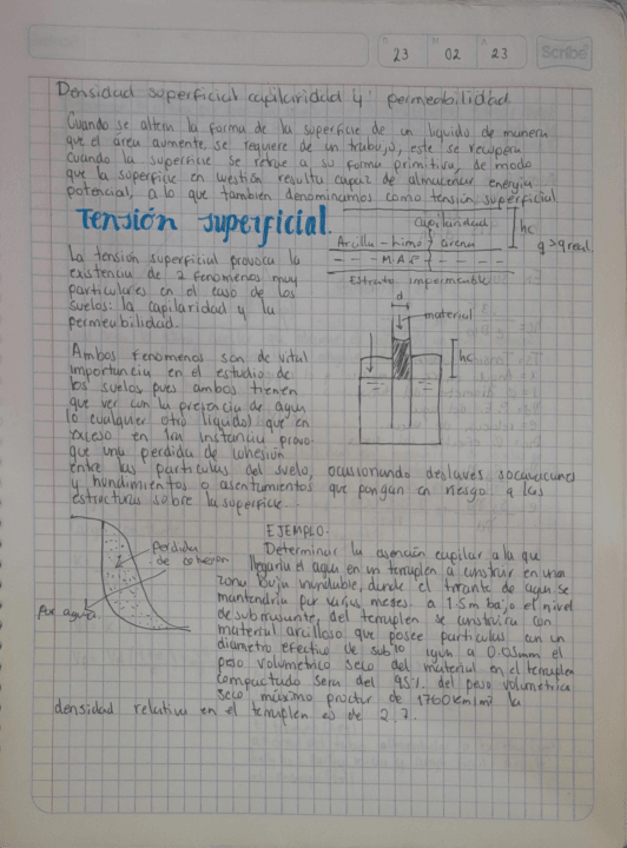 23 02 23 Scribe
Densidad superficial capilaridad y permeabilidad.
Cuando se altera la forma de la superficie de un liquido de manera
que el área aumente se requiere de un trabajo, este se recupera
cuando la superficie se retrae a su forma primitiva, de modo
que la superficie en cuestión resulta capaz de almacenar energia
potencial, a lo que tambien denominamos como tensión superficial
Tensión superficial.
Capilaridad
hc
Arcilla - limo arena
q > q real.
M.A.F
Estrato impermeable
La tensión superficial provoca la
existencia de 2 fenomenos muy
particulares en el caso de los
suelos: la capilaridad y la
permeabilidad.
d
material
hc
Ambos fenomenos son de vital
importancia en el estudio de
los suelos pues ambos tienen
que ver con la presencia de agua
(o cualquier otro liquido) que en
exceso en 1ra instancia provo-
que una perdida de cohesión
entre las particulas del suelo, ocasionando deslaves socavaciones
y hundimientos o asentamientos que pongan en riesgo a las
estructuras sobre la superficie.
EJEMPLO.
perdida
de cohesion
por agua.
Determinar la asención capilar a la que
llegaria el agua en un terraplen a construir en una
zona baja inundable, donde el tirante de agua se
mantendria por varios meses. a 1.5m bajo el nivel
de subrasante, del terraplen se construira con
material arcilloso que posee particulas con un
diametro efectivo de sub10 igual a 0.05mm el
peso volumetrico seco del material en el terraplen
compactado sera del 95% del peso volumetrico
seco máximo proctor de 1760 km/m³ la
densidad relativa en el terraplen es de 2.7.